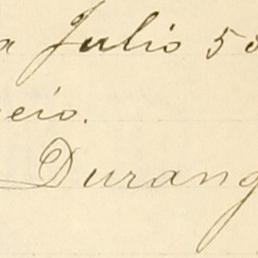 a Julio 53
eio.
Durang